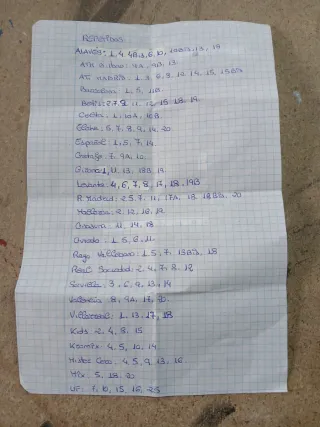 REPETIDAS
ALAVÉS: 1, 4, 4B, 3, 6, 10, 10B, 13, 19
ATH Bilbao: 4A, 9B, 13
AT. MADRID: 1, 3, 6, 8, 12, 14, 15, 15B
Barcelona: 1, 5, 11B
Betis: 2, 7, 9, 11, 12, 15, 18, 19
Celta: 1, 10A, 10B
Elche: 5, 7, 8, 9, 14, 20
Español: 1, 5, 7, 14
Getafe: 7, 9A, 10
Girona: 1, 11, 13, 18B, 19
Levante: 4, 6, 7, 8, 12, 18, 19B
R. Madrid: 2, 5, 7, 11, 17A, 18, 18B, 20
Mallorca: 2, 12, 16, 19
Osasuna: 11, 14, 18
Oviedo: 1, 5, 6, 11
Rayo Vallecano: 1, 5, 7, 13B, 18
Real Sociedad: 2, 4, 7, 8, 12
Sevilla: 3, 6, 9, 13, 19
Valencia: 8, 9A, 17, 20
Villarreal: 1, 13, 17, 18
Kids: 2, 4, 8, 15
4, 5, 10, 14
4, 5, 9, 13, 16
5, 18, 20
UF: 7, 10, 15, 16, 23